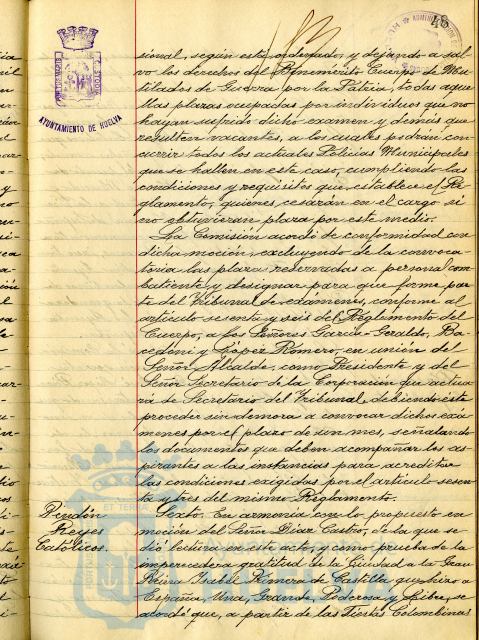 48
AYUNTAMIENTO DE HUELVA
sional, según está ordenado, y dejando a sal-
vo los derechos del Benemérito Cuerpo de Mu-
tilados de Guerra por la Patria, todas aque-
llas plazas ocupadas por individuos que no
hayan sufrido dicho examen y demás que
resulten vacantes, a los cuales podrán con-
currir todos los actuales Policías Municipales
que se hallen en este caso, cumpliendo las
condiciones y requisitos que establece el Re-
glamento, quienes, cesarán en el cargo si
no obtuvieran plaza por este medio.
La Comisión acordó de conformidad con
dicha moción, excluyendo de la convoca-
toria las plazas reservadas a personal com-
batiente, y designar para que forme par-
te del Tribunal de exámenes, conforme al
artículo sesenta y seis del Reglamento del
Cuerpo, a los Señores García-Geraldo,
y López Romero, en unión del
Señor Alcalde, como Presidente y del
Señor Secretario de la Corporación que actua-
rá de Secretario del Tribunal, debiendo éste
proceder sin demora a convocar dichos exá-
menes por el plazo de un mes, señalando
los documentos que deben acompañar los as-
pirantes a las instancias para acreditar
las condiciones exigidas por el artículo sesen-
ta y tres del mismo Reglamento.
Pendón
Reyes
Católicos.
Sexto. En armonía con lo propuesto en
moción del Señor Díaz Castro, de la que se
dió lectura en este acto, y como prueba de la
imperecedera gratitud de la Ciudad a la Gran
Reina Isabel Primera de Castilla que hizo a
España, Una, Grande, Poderosa y Libre, se
acordó que, a partir de las Fiestas Colombinas